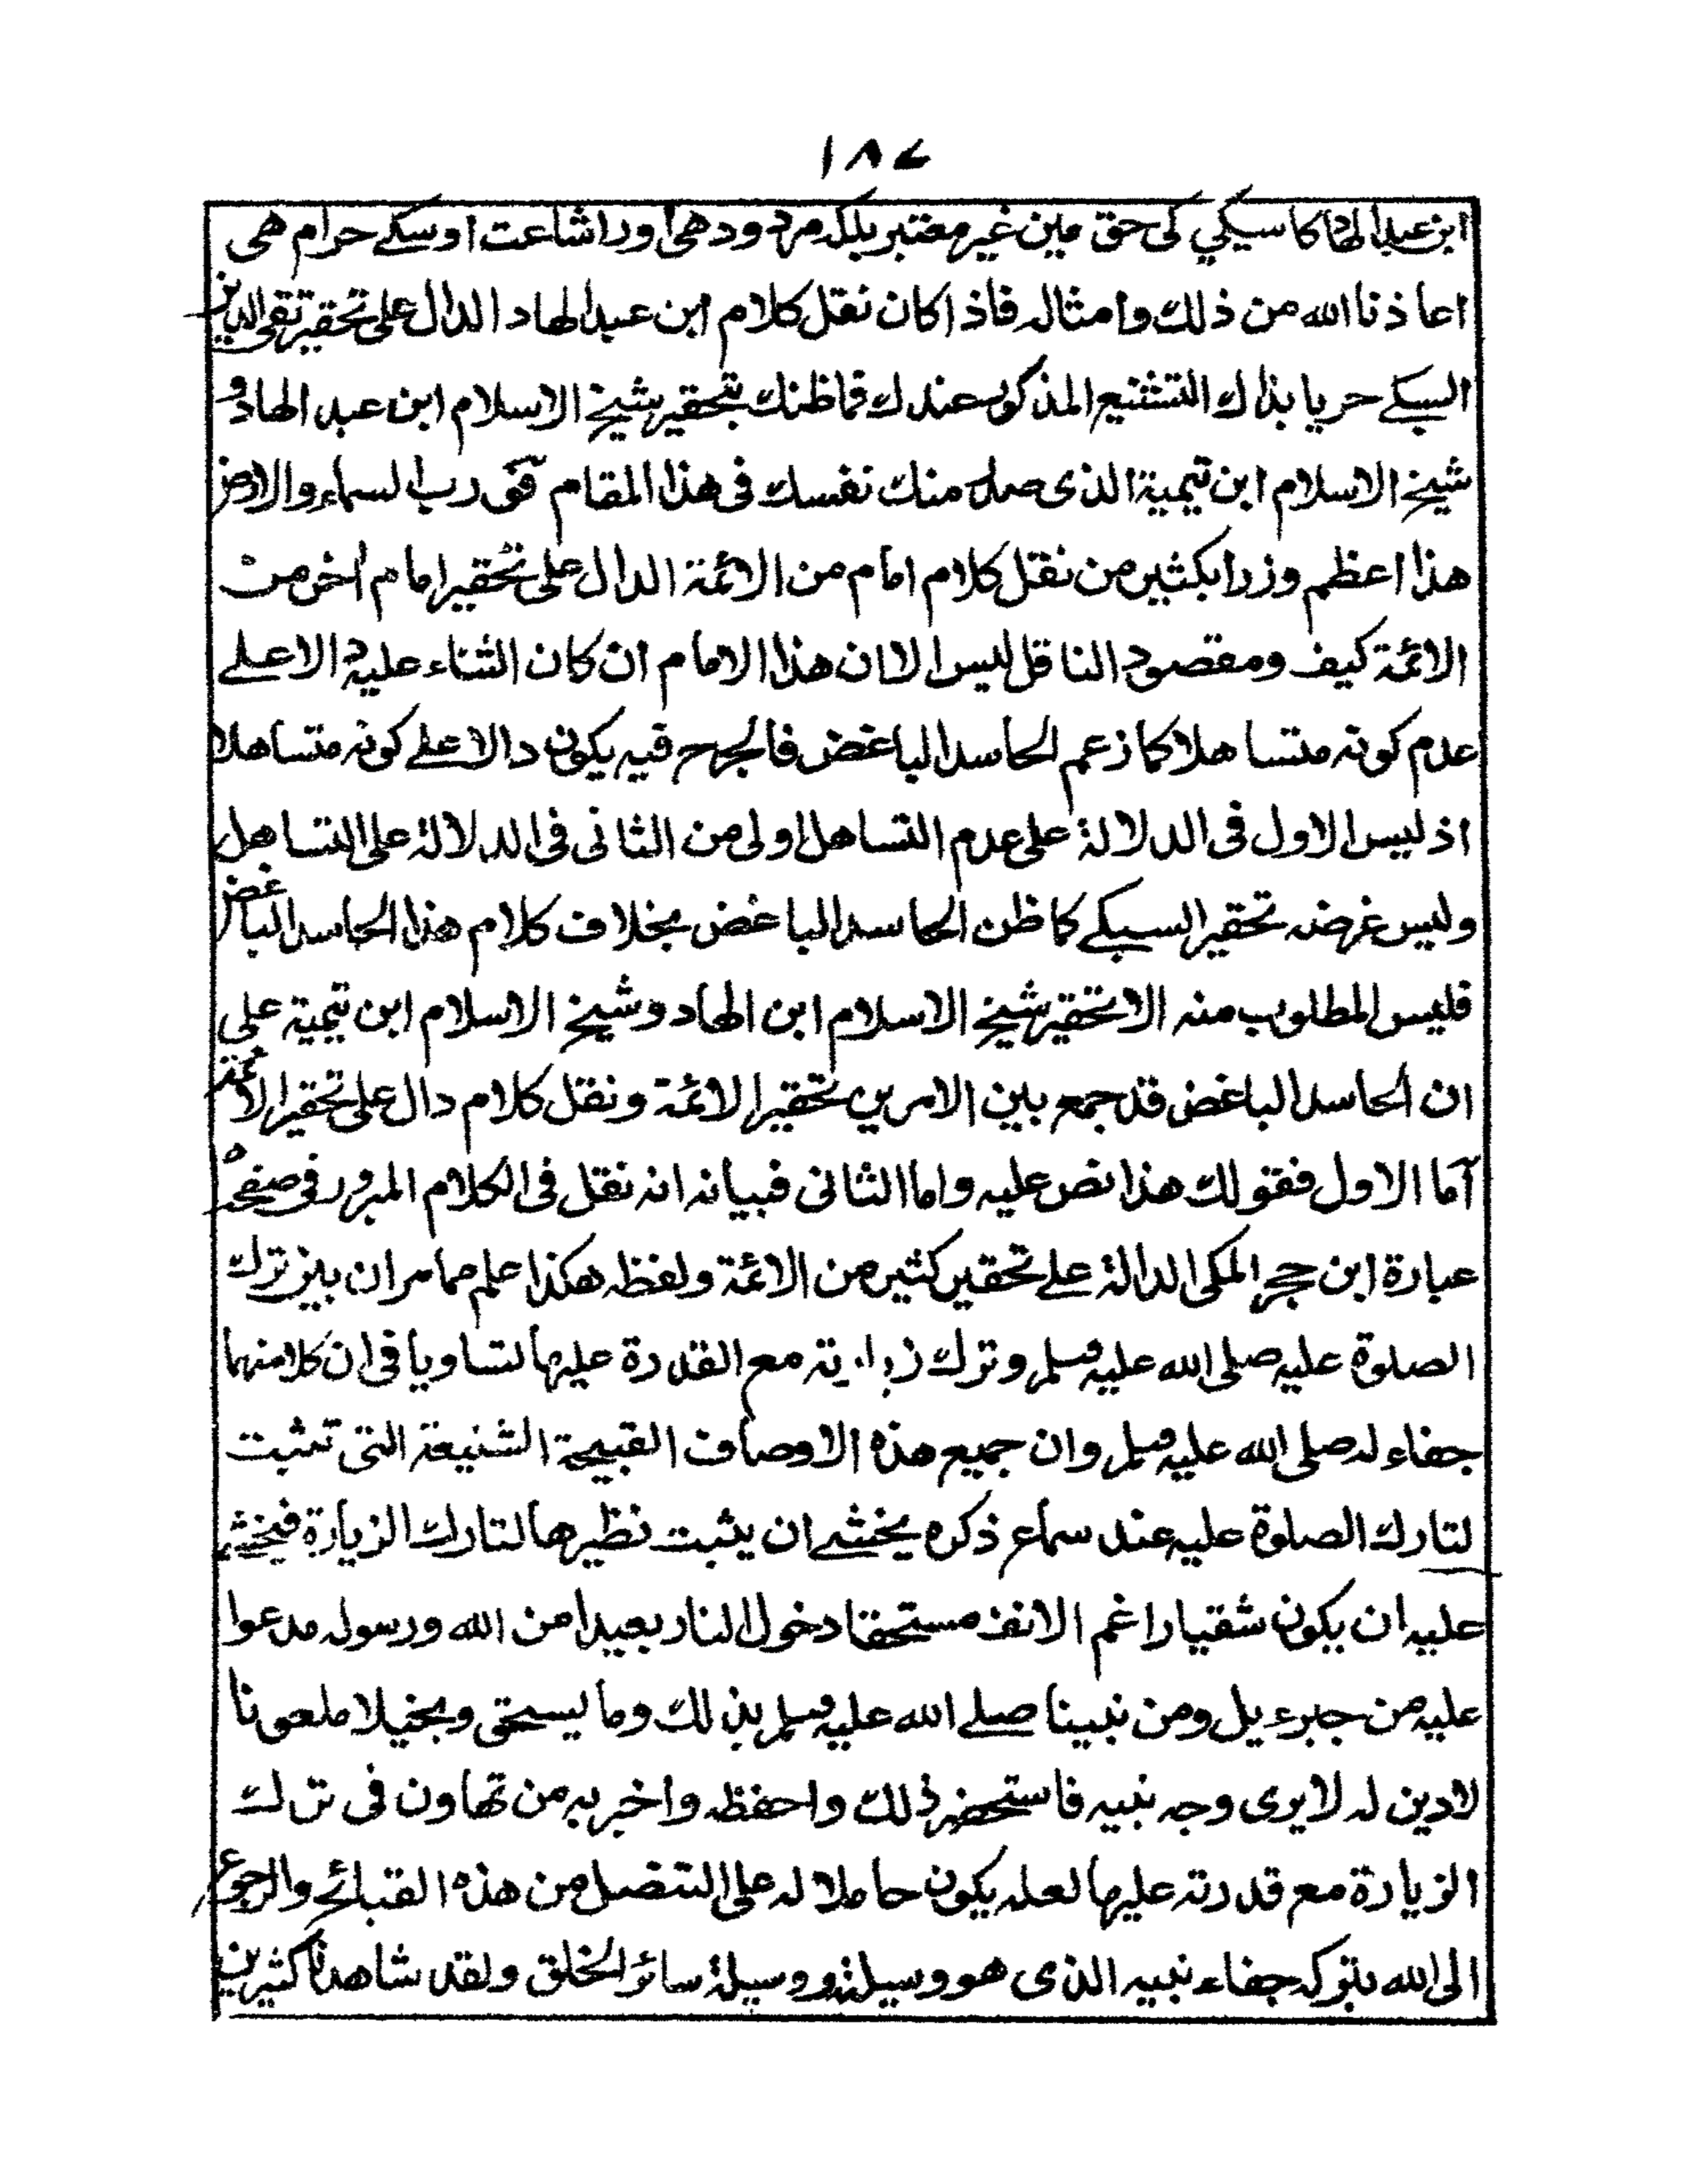 ١٨٧
ابن عبد الهاد كا سبكي كى حق مين غير معتبر بلكه مردود هى اور اشاعت اوسكے حرام هى
اعاذنا الله من ذلك وامثاله فاذا كان نقل كلام ابن عبد الهاد الدال على تحقير تقى الدين
السبكے حريا بذاك التشنيع المذكور عندك فما ظنك بتحقير شيخ الاسلام ابن عبد الهاد و
شيخ الاسلام ابن تيمية الذى صدر منك نفسك فى هذا المقام فو رب السماء والارض
هذا اعظم وزرا بكثير من نقل كلام امام من الائمة الدال على تحقير امام اخر من
الائمة كيف ومقصود الناقل ليس الا ان هذا الامام ان كان الثناء عليه دالا علے
عدم كونه متساهلا كما زعم الحاسد الباغض فالجرح فيه يكون دالا علے كونه متساهلا
اذ ليس الاول فى الدلالة على عدم التساهل اولى من الثانى فى الدلالة على التساهل
وليس غرضه تحقير السبكے كما ظن الحاسد الباغض بخلاف كلام هذا الحاسد الباغض
فليس المطلوب منه الا تحقير شيخ الاسلام ابن الهاد وشيخ الاسلام ابن تيمية على
ان الحاسد الباغض قد جمع بين الامرين تحقير الائمة ونقل كلام دال على تحقير الائمة
آما الاول فقولك هذا نص عليه واما الثانى فبيانه انه نقل فى الكلام المبرور فى صفحه
عبارة ابن حجر المكى الدالة علے تحقير كثير من الائمة ولفظه هكذا علم مما مر ان بين ترك
الصلوة عليه صلى الله عليه وسلم وترك زيارته مع القدرة عليها لتساويا فى ان كلا منهما
جفاء له صلى الله عليه وسلم وان جميع هذه الاوصاف القبيحة الشنيعة التى تثبت
لتارك الصلوة عليه عند سماع ذكره يخشے ان يثبت نظيرها لتارك الزيارة فيخشے
عليه ان يكون شقيا راغم الانف مستحقا دخول النار بعيدا من الله ورسوله مدعوا
عليه من جبرءيل ومن نبينا صلے الله عليه وسلم بذلك وما يستحق وبخيلا ملعونا
لا دين له لا يرى وجه نبيه فاستحضر ذلك واحفظه واخبر به من تهاون فى ترك
الزيارة مع قدرته عليها لعله يكون حاملا له على التنصل من هذه القبائح والرجوع
الى الله بتركه جفاء نبيه الذى هو وسيلته ووسيلة سائر الخلق ولقد شاهدنا كثيرين